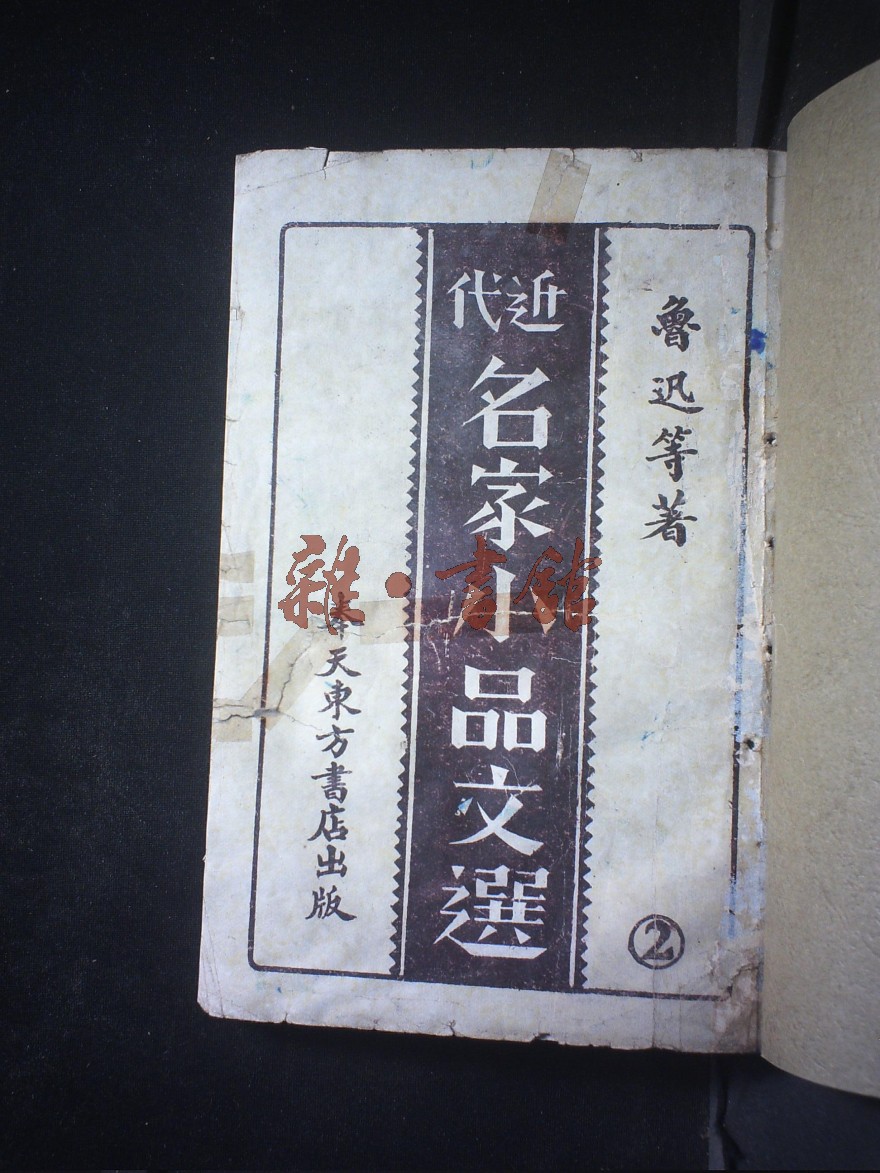 魯迅等著
近代
名家小品文選
奉天東方書店出版
②
雜·書館